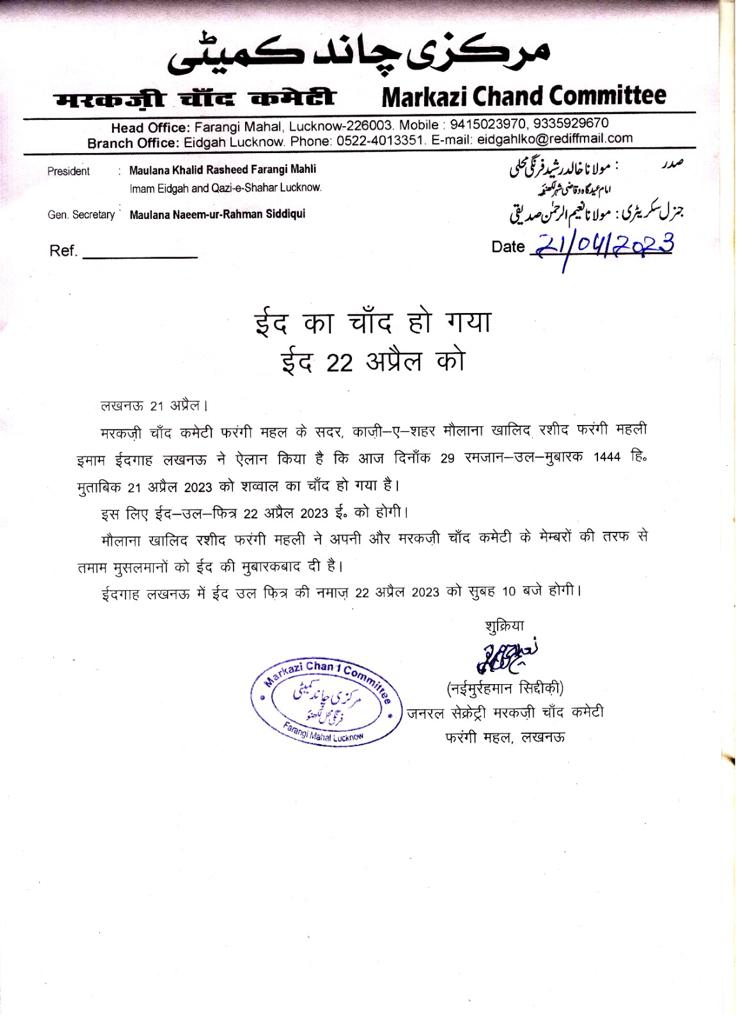 مرکزی چاند کمیٹی
मरकज़ी चाँद कमेटी Markazi Chand Committee
Head Office: Farangi Mahal, Lucknow-226003. Mobile : 9415023970, 9335929670
Branch Office: Eidgah Lucknow. Phone: 0522-4013351. E-mail: eidgahlko@rediffmail.com
President : Maulana Khalid Rasheed Farangi Mahli صدر : مولانا خالد رشید فرنگی محلی
Imam Eidgah and Qazi-e-Shahar Lucknow. امام عیدگاہ و قاضی شہر لکھنؤ
Gen. Secretary : Maulana Naeem-ur-Rahman Siddiqui جنرل سکریٹری : مولانا نعیم الرحمٰن صدیقی
Ref. Date 21/04/2023
ईद का चाँद हो गया
ईद 22 अप्रैल को
लखनऊ 21 अप्रैल।
मरकज़ी चाँद कमेटी फरंगी महल के सदर, काज़ी-ए-शहर मौलाना खालिद रशीद फरंगी महली
इमाम ईदगाह लखनऊ ने ऐलान किया है कि आज दिनाँक 29 रमजान-उल-मुबारक 1444 हि॰
मुताबिक 21 अप्रैल 2023 को शव्वाल का चाँद हो गया है।
इस लिए ईद-उल-फित्र 22 अप्रैल 2023 ई॰ को होगी।
मौलाना खालिद रशीद फरंगी महली ने अपनी और मरकज़ी चाँद कमेटी के मेम्बरों की तरफ से
तमाम मुसलमानों को ईद की मुबारकबाद दी है।
ईदगाह लखनऊ में ईद उल फित्र की नमाज़ 22 अप्रैल 2023 को सुबह 10 बजे होगी।
शुक्रिया
(नईमुर्रहमान सिद्दीक़ी)
जनरल सेक्रेट्री मरकज़ी चाँद कमेटी
फरंगी महल, लखनऊ
Markazi Chand Committee
مرکزی چاند کمیٹی
فرنگی محل لکھنؤ
Farangi Mahal Lucknow